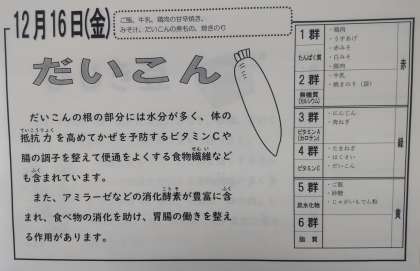 12月16日(金)
ご飯、牛乳、鶏肉の甘辛焼き、
みそ汁、だいこんの煮もの、焼きのり
だいこん
だいこんの根の部分には水分が多く、体の
ていこうりょく
抵抗力を高めてかぜを予防するビタミンCや
せんい
腸の調子を整えて便通をよくする食物繊維など
ふく
も含まれています。
こうそ
ふく
また、アミラーゼなどの消化酵素が豊富に含
まれ、食べ物の消化を助け、胃腸の働きを整え
る作用があります。
1群
たんぱく質
・鶏肉
・うすあげ
・赤みそ
・白みそ
・豚肉
2群
無機質
(カルシウム)
・牛乳
・焼きのり
赤
3群
ビタミンA
(カロテン)
・にんじん
・青ねぎ
4群
ビタミンC
・たまねぎ
・はくさい
・だいこん
5群
炭水化物
・ご飯
・砂糖
・じゃがいもでん粉
6群
脂質
黄